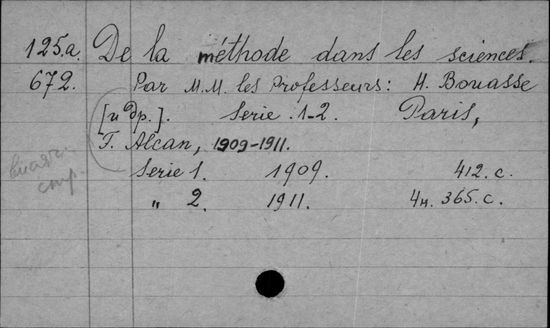 125.a. De la méthode dans les sciences.
672. Par M.M. les Professeurs: H. Bouasse
[и др.]. Serie 1-2. Paris,
F. Alcan, 1909-1911.
Serie 1. 1909. 412. c.
„ 2. 1911. 4н. 365. c.